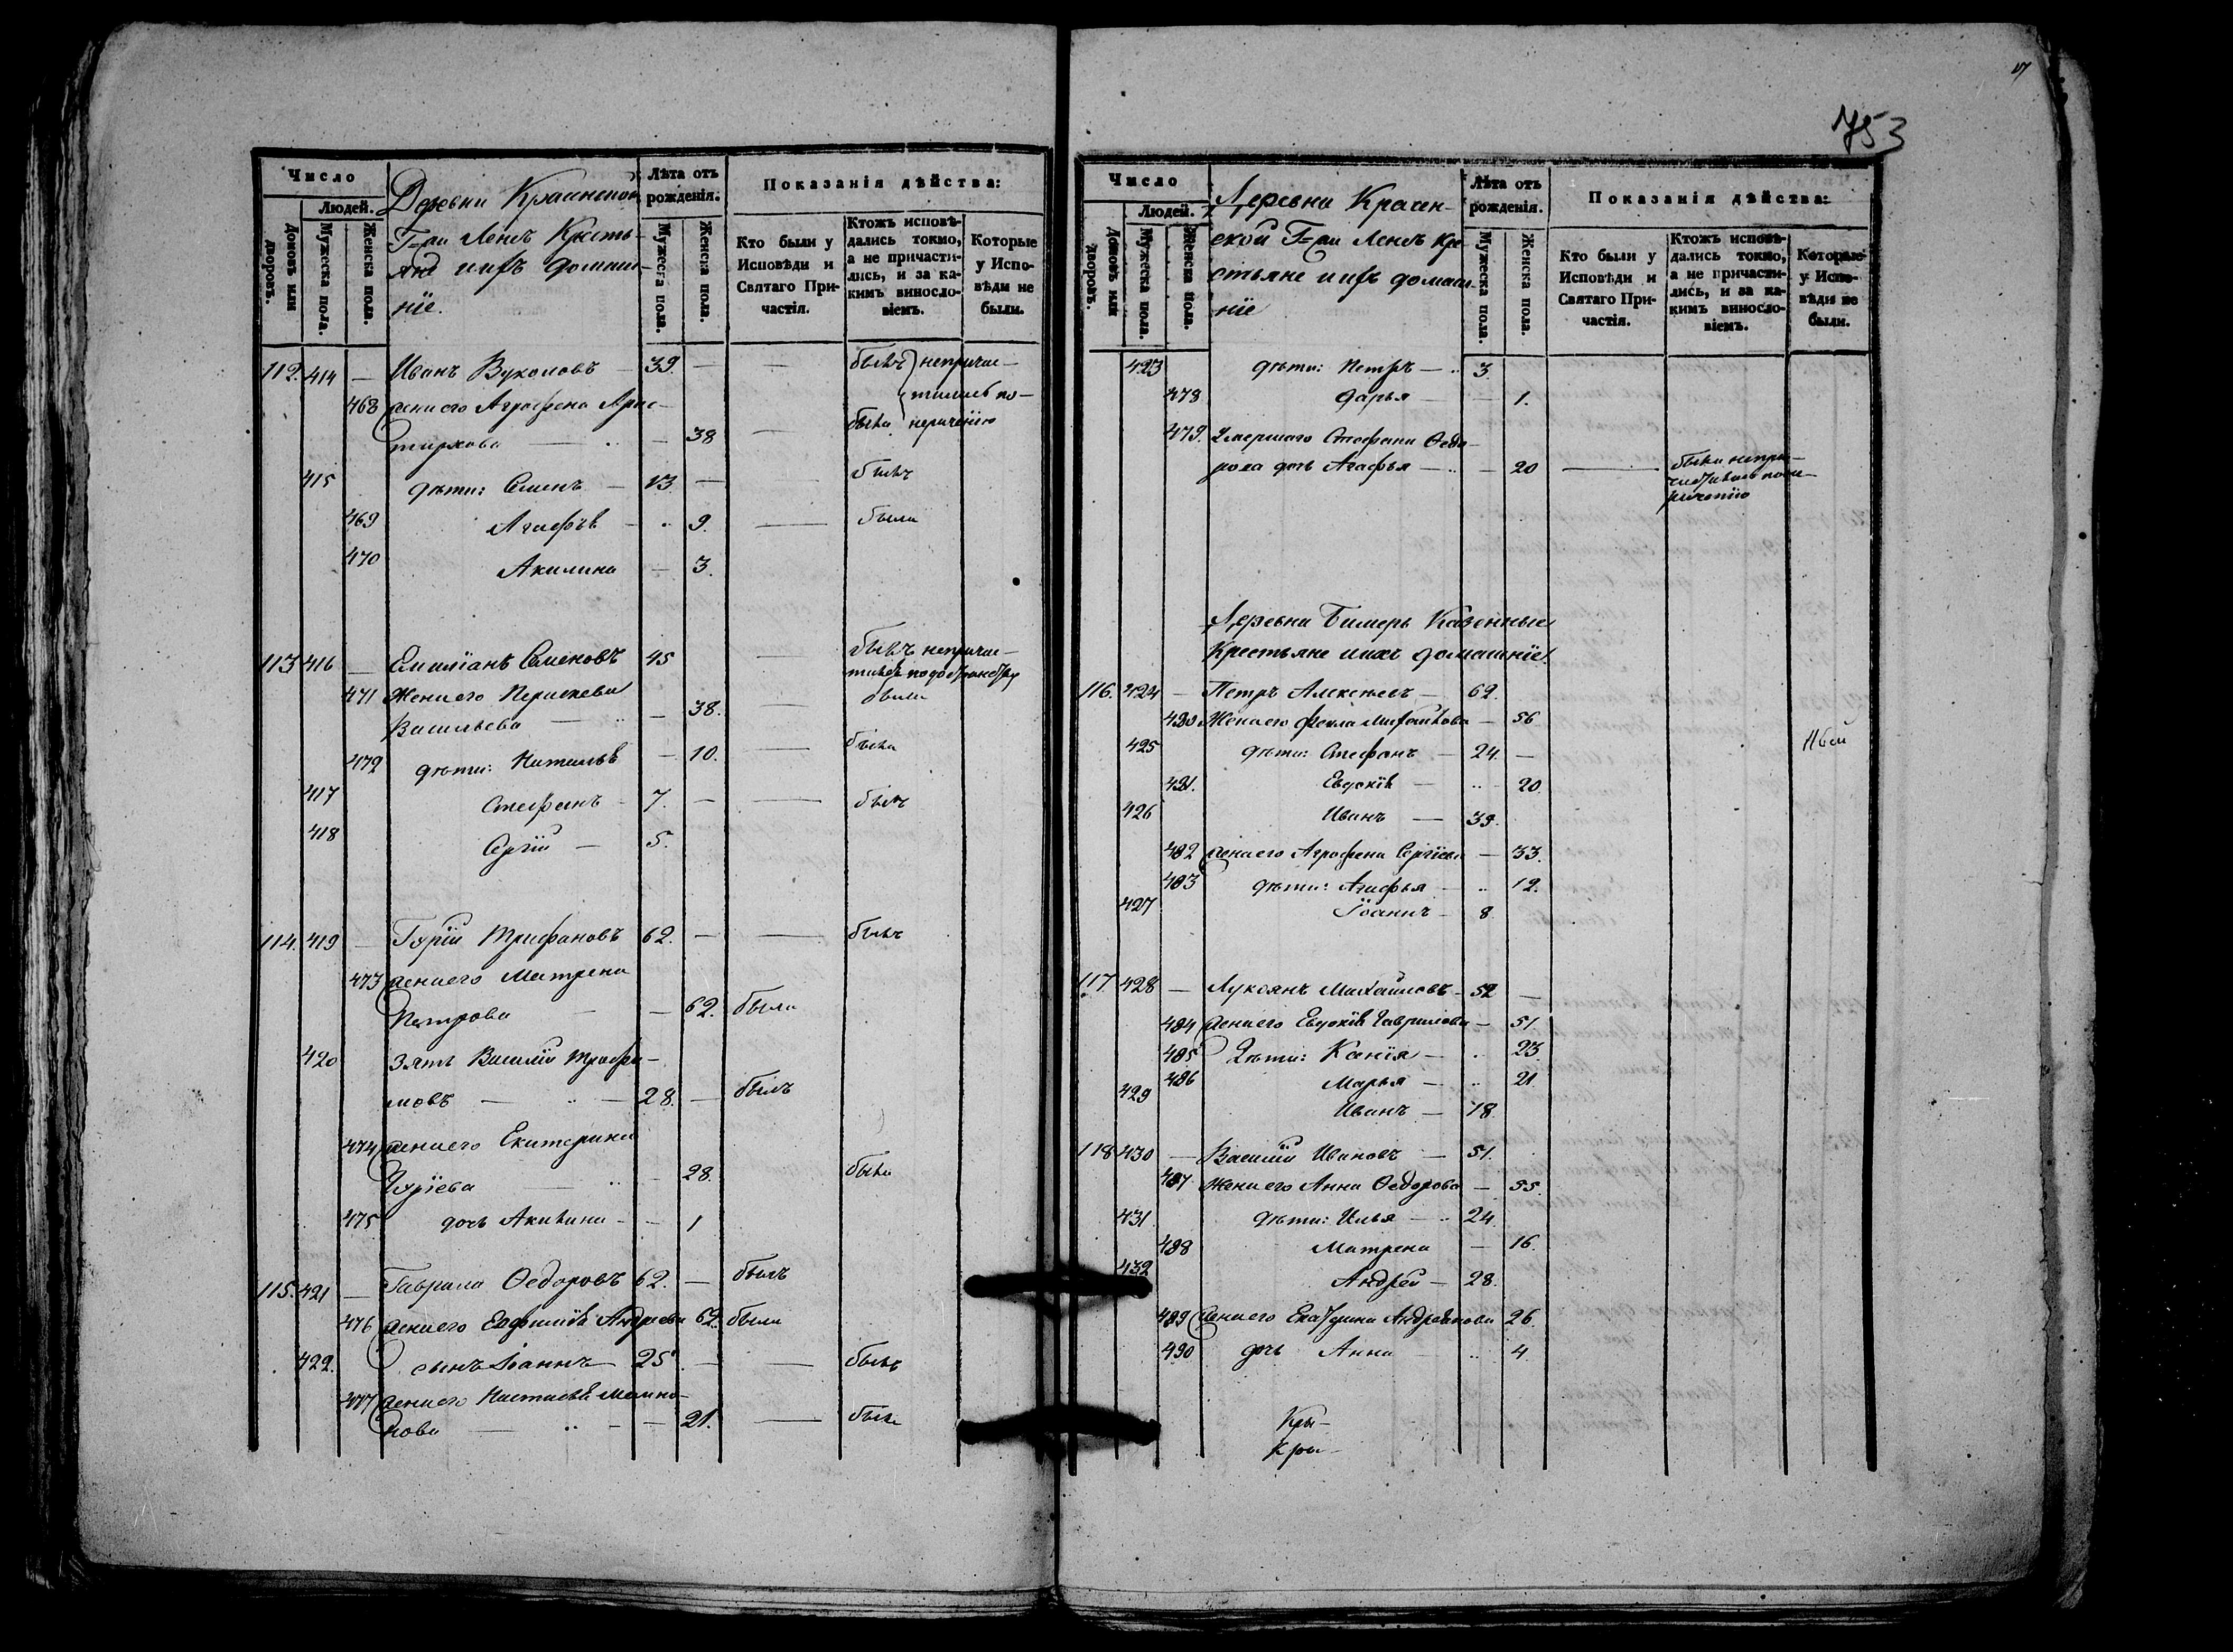 753
Число
Людей.
Домовъ или дворовъ.
Мужеска пола.
Женска пола.
Деревни Краинской
Г=жи Ленсъ Кресть-
яне и ихъ домаш-
ніе.
Лѣта отъ рожденія.
Мужеска пола.
Женска пола.
Показанія дѣйства:
Кто были у Исповѣди и Святаго При-частія.
Ктожъ исповѣ-дались токмо, а не причасти-лись, и за ка-кимъ винословіемъ.
Которые у Испо-вѣди не были.
112. 414 — Иванъ Вуколовъ — 39. — — былъ непричас-
468 жена его Аграфена Арис- тились по-
тархова — 38 — была нераченію
415 дѣти: Семенъ — 13 — — былъ
469 Агафья — 9. — была
470 Акилина — 3.
113 416 — Емиліанъ Семеновъ 45 — былъ непричас-
471 Жена его Параскева
Васильева — 38. — была
472 дѣти: Наталья — 10. — была
417 Стефанъ — 7. — — былъ
418 Сергій — 5.
114. 419 — Гурій Трифановъ 62. — — былъ
473 жена его Матрена
Петрова — 62. была
420 Зять Василій Трофи-
мовъ — 28. — былъ
474 жена его Екатерина
Гурїева — 28. была
475 дочь Акилина — 1
115. 421 — Гаврила Ѳедоровъ 62. — былъ
476 жена его Евфимія Андреева 62. была
422. сынъ Іоаннъ — 25 — — былъ
477 жена его Настасья
нова — 21. — была
Число
Людей.
Домовъ или дворовъ.
Мужеска пола.
Женска пола.
Деревни Краин-
ской Г=жи Ленсъ Кре-
стьяне и ихъ домаш-
ніе
Лѣта отъ рожденія.
Мужеска пола.
Женска пола.
Показанія дѣйства:
Кто были у Исповѣди и Святаго При-частія.
Ктожъ исповѣ-дались токмо, а не причасти-лись, и за ка-кимъ винословіемъ.
Которые у Испо-вѣди не были.
423 дѣти: Петръ — 3
478 Дарья — 1.
479. Умершаго Стефана Ѳедо-
рова дочь Агафья — 20 — была непри-
частилась по не-
раченію
Деревни Бимерь Казенные
Крестьяне и ихъ домашніе.
116. 424 — Петръ Алексѣевъ — 62.
480 Жена его Фекла Михайлова — 56
425 дѣти: Стефанъ — 24. —
481. Евдокія — 20.
426 Иванъ — 39.
482 жена его Аграфена Сергіева — 33.
483 дѣти: Агафья — 12.
427 Іоаннъ — 8
117. 428 — Лукоянъ Михайловъ — 52 —
484 жена его Евдокія Гаврилова — 51
485 Дѣти: Ксенія — 23.
486 Марья — 21
429 Иванъ — 18
118 430 — Василій Ивановъ — 51.
487 Жена его Анна Ѳедорова — 55.
431 дѣти: Илья — 24.
488 Матрена — 16.
432 Андрей — 28.
489 жена его Екатерина Андреянова 26.
490 дочь Анна — 4